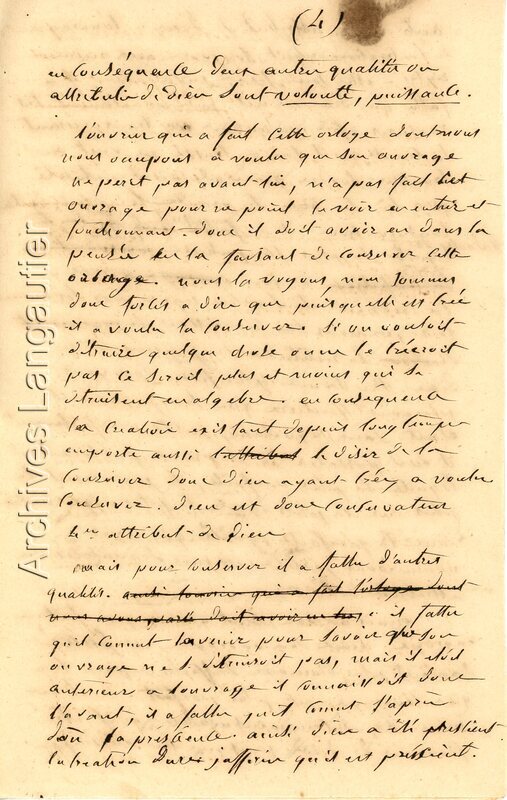 (4)
en conséquence deux autres qualités ou
attributs de Dieu sont volonté, puissance.
L'ouvrier qui a fait cette orloge dont nous
nous occupons a voulu que son ouvrage
ne perit pas avant lui, n'a pas fait cet
ouvrage pour ne point le voir en entier et
fonctionnant. donc il doit avoir eu dans la
pensée en la faisant de conserver cette
orloge. nous la voyons nous sommes
donc forcés a dire que puisqu'elle est créé
il a voulu la conserver. Si on vouloit
détruire quelque chose on ne le créeroit
pas ce seroit plus et moins qui se
détruisent en algebre. en conséquence
la création existant depuis longtemps
emporte aussi l'attribut le désir de la
conserver donc Dieu ayant créé, a voulu
conserver. Dieu est donc conservateur
attribut de Dieu
mais pour conserver il a fallu d'autres
qualités. ainsi l'ouvrier qui a fait l'orloge dont
nous avons parlé doit avoir eu
il fallu
qu'il connut l'avenir pour savoir que son
ouvrage ne se détruiroit pas, mais il étoit
antérieur a l'ouvrage il connaissoit donc
l'avant, il a fallu qu'il connut l'après
donc sa prescience. ainsi Dieu a été prescient
la création dure j'affirme qu'il est prescient.
Archives Langautier